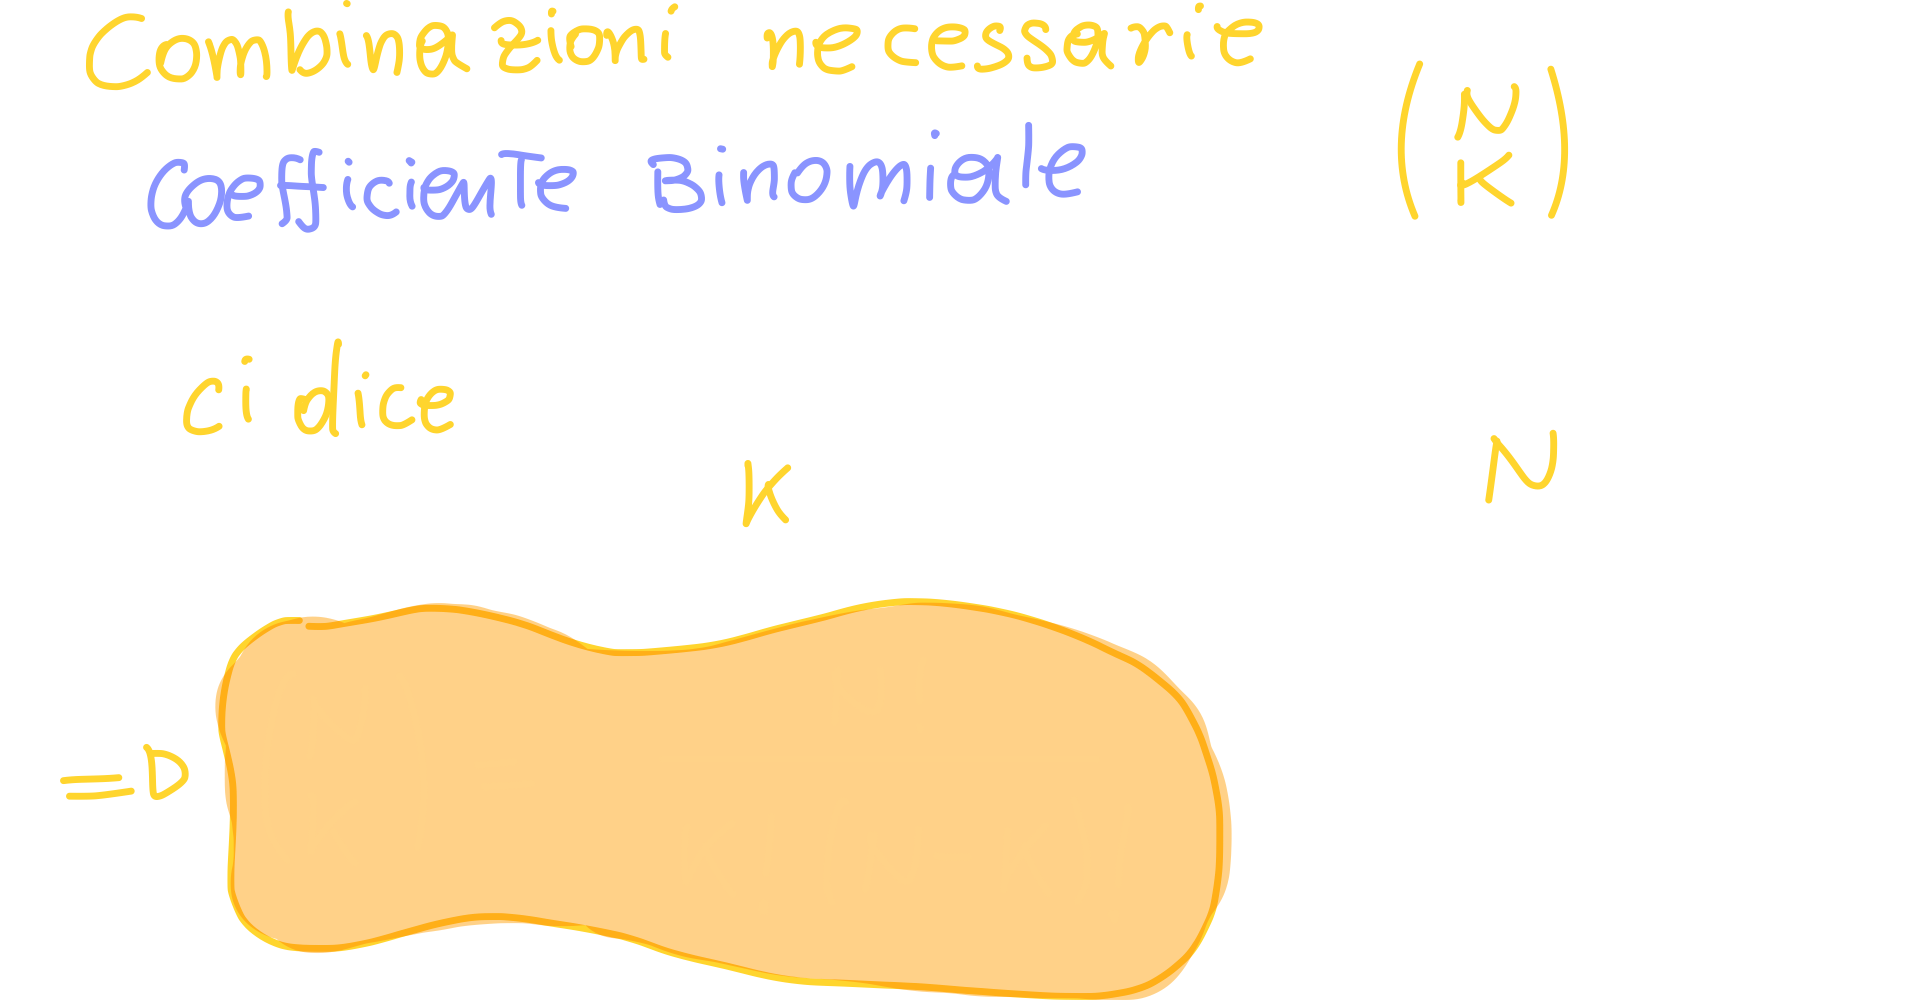 Combinazioni necessarie
(N K)
Coefficiente Binomiale
ci dice
K N
=D (N K) = N! / K! (N-K)!